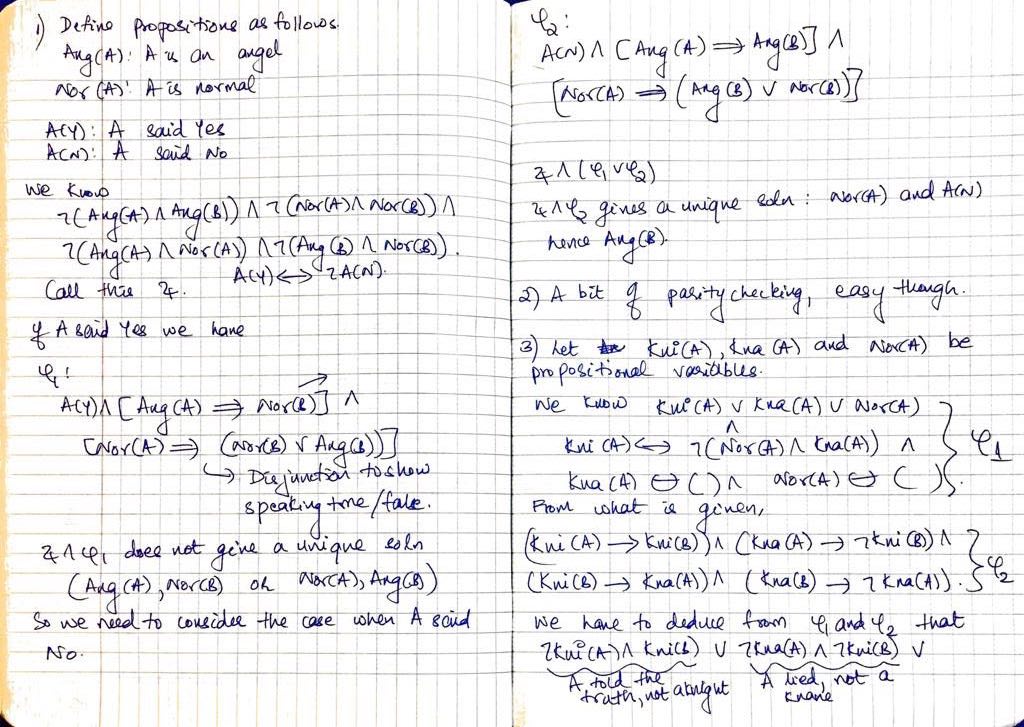 1) Define propositions as follows.
Ang(A): A is an angel
Nor(A): A is normal
A(Y): A said Yes
A(N): A said No
We know
¬(Ang(A) ∧ Ang(B)) ∧ ¬(Nor(A) ∧ Nor(B)) ∧
¬(Ang(A) ∧ Nor(A)) ∧ ¬(Ang(B) ∧ Nor(B)).
A(Y) ↔ ¬A(N).
Call this
If A said Yes we have
φ₁:
A(Y) ∧ [Ang(A) ⇒ Nor(B)] ∧
[Nor(A) ⇒ (Nor(B) ∨ Ang(B))]
↳ Disjunction to show
speaking true/false.
∧ φ₁ does not give a unique soln
(Ang(A), Nor(B) or Nor(A), Ang(B))
So we need to consider the case when A said
No.
φ₂:
A(N) ∧ [Ang(A) ⇒ Ang(B)] ∧
[Nor(A) ⇒ (Ang(B) ∨ Nor(B))]
∧ (φ₁ ∨ φ₂)
∧ φ₂ gives a unique soln: Nor(A) and A(N)
hence Ang(B).
2) A bit of parity checking, easy though.
3) Let Kni(A), Kna(A) and Nor(A) be
propositional variables.
We know Kni(A) ∨ Kna(A) ∨ Nor(A)
∧
Kni(A) ↔ ¬(Nor(A) ∧ Kna(A)) ∧
Kna(A) ↔ ( ) ∧ Nor(A) ↔ ( ). } φ₁
From what is given,
(Kni(A) → Kni(B)) ∧ (Kna(A) → ¬Kni(B)) ∧
(Kni(B) → Kna(A)) ∧ (Kna(B) → ¬Kna(A)). } φ₂
We have to deduce from φ₁ and φ₂ that
¬Kni(A) ∧ Kni(B) ∨ ¬Kna(A) ∧ ¬Kni(B) ∨
A told the truth, not a knight
A lied, not a knave